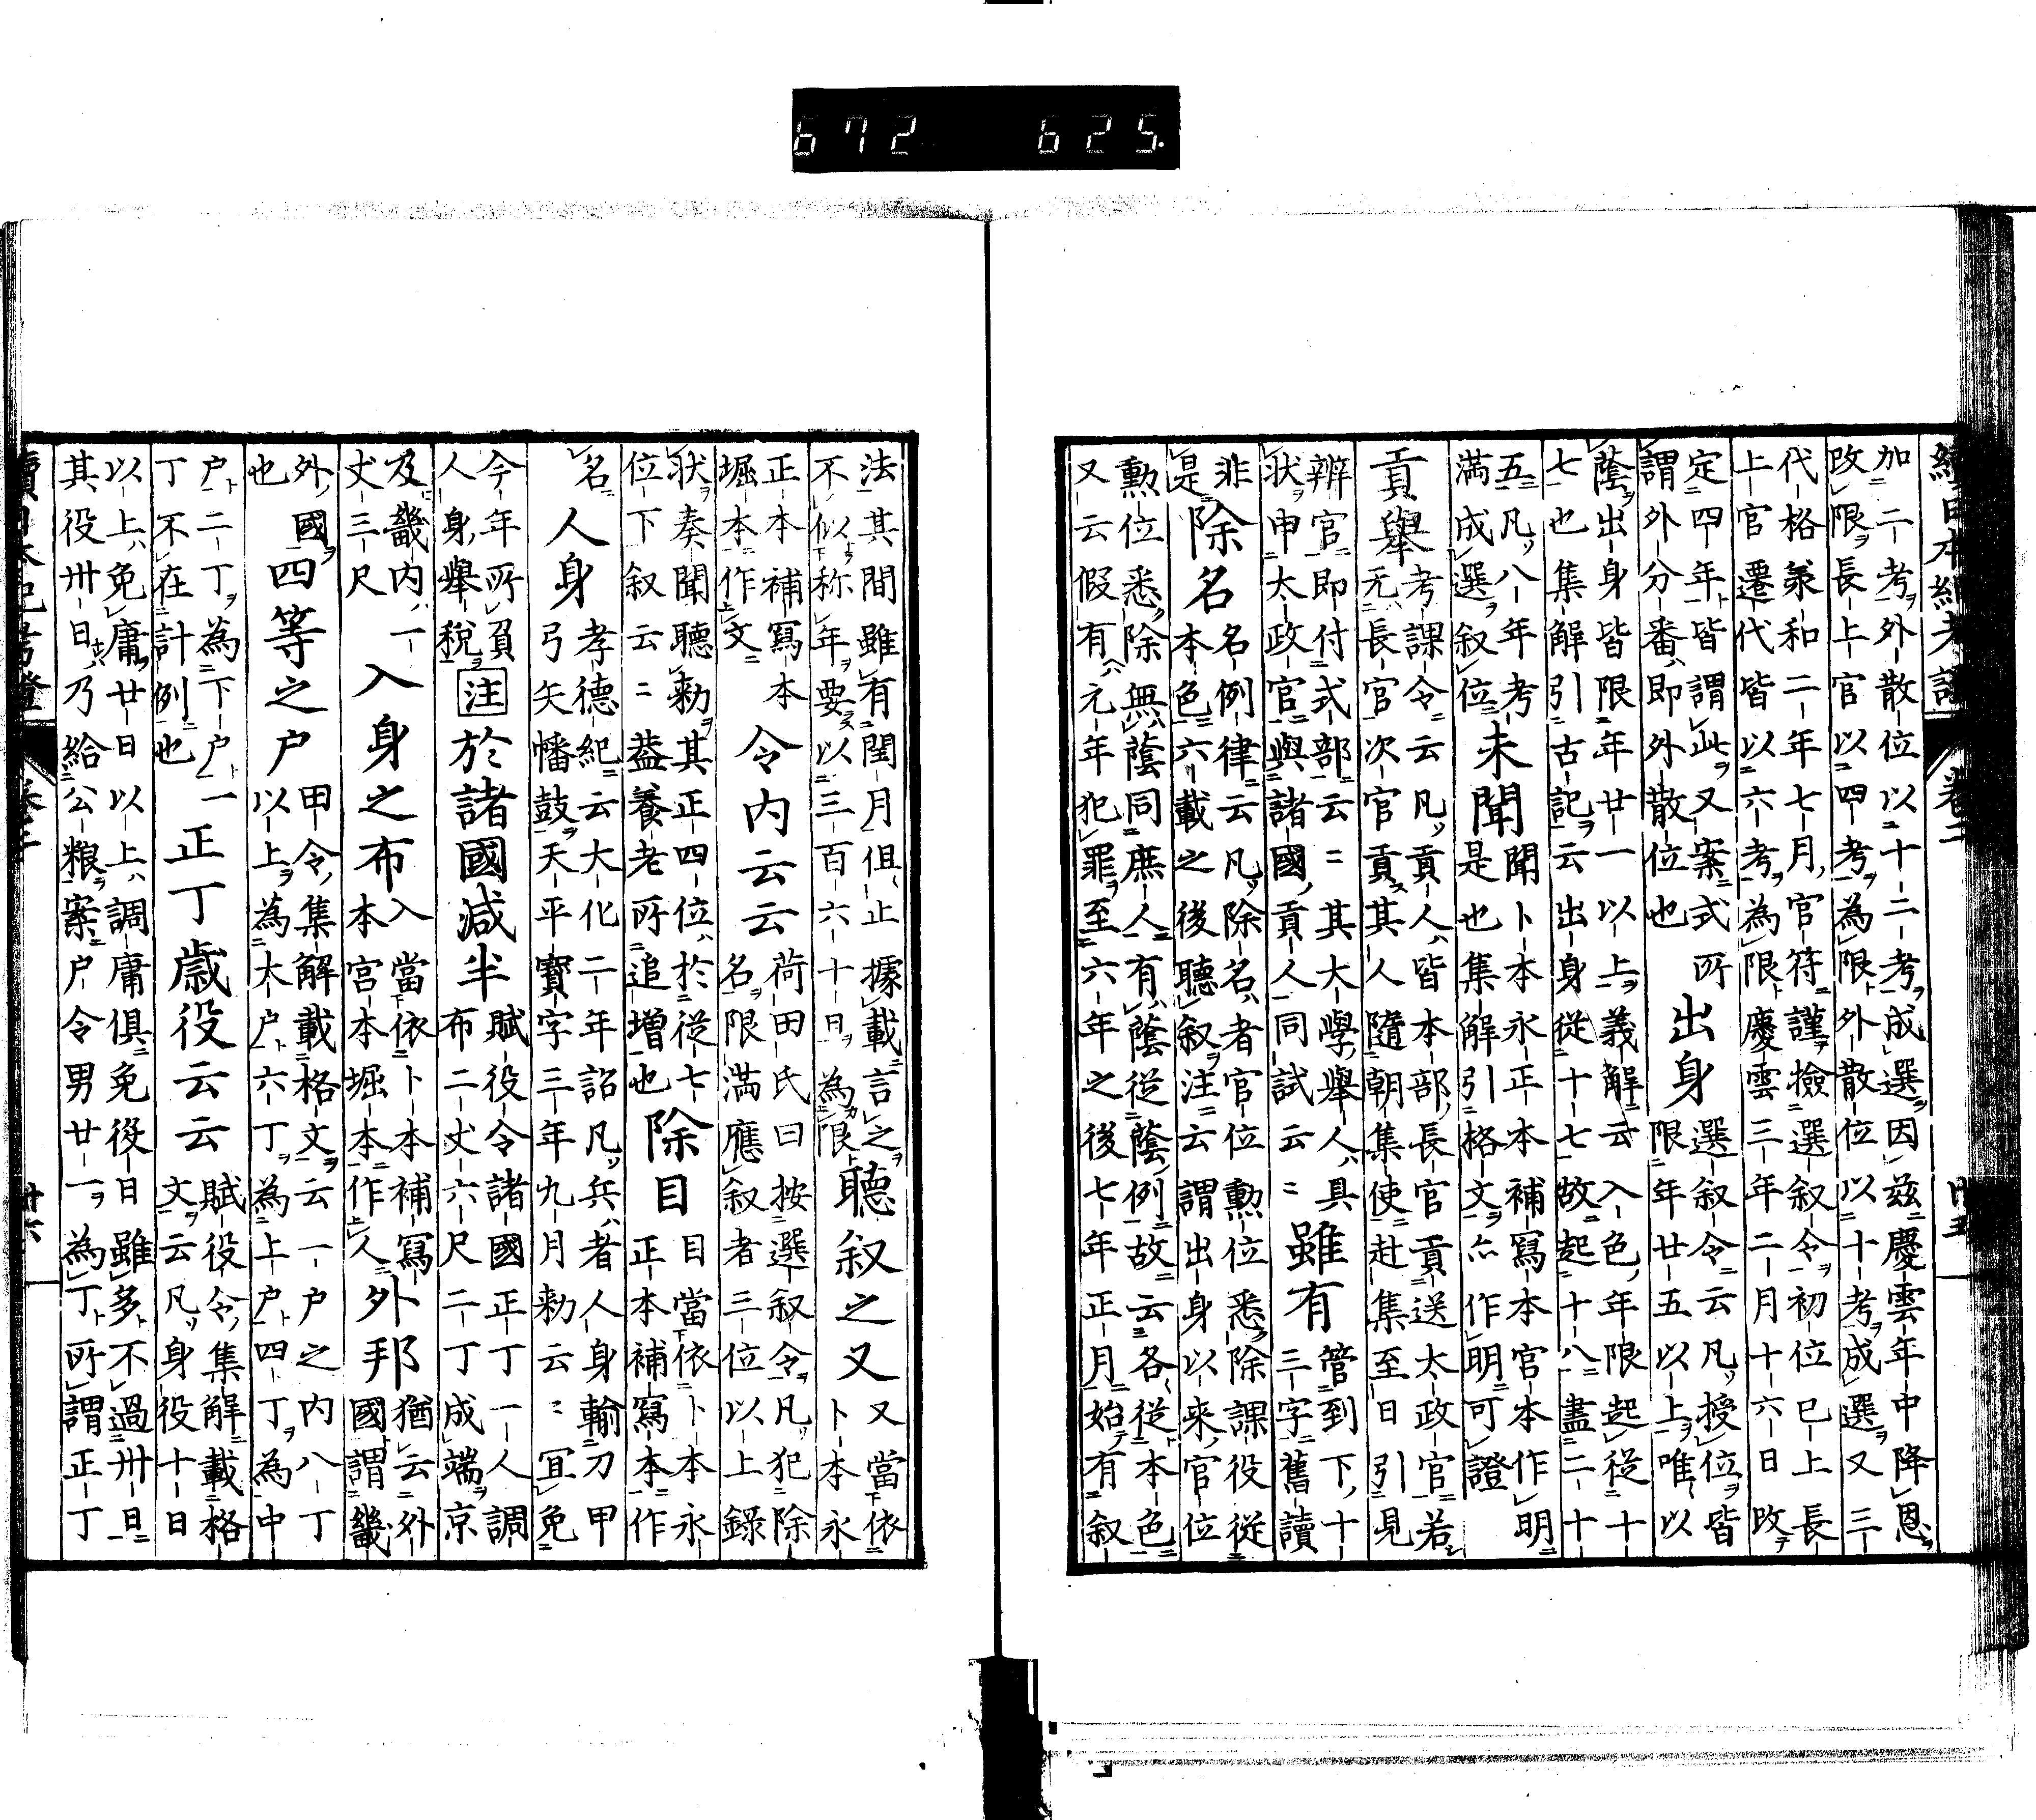 672 625
加二考外散位以十二考成選因茲慶雲年中降恩
改限長上官以四考為限外散位以十考成選又三
代格彖和二年七月官符謹撿選叙令初位已上長
上官遷代皆以六考為限慶雲三年二月十六日改
定四年皆謂此又案式所
謂外分番即外散位也
出身
選叙令云凡授位皆
限年廿五以上唯以
蔭出身皆限年廿一以上義解云入色年限起從十
七也集解引古記云出身從十七故起十八盡二十
五凡八年考
満成選叙位
未聞
聞卜本永正本補寫本宮本作明
是也集解引格文亦作明可證
貢舉
考課令云凡貢人皆本部長官貢送太政官若
无長官次官貢其人隨朝集使赴集至日引見
辨官即付式部云〻其大學舉人具
状申太政官與諸國貢人同試云〻
雖有
管到下十
三字舊讀
非
是
除名
名例律云凡除名者官位勳位悉除課役從
本色六載之後聽叙注云謂出身以來官位
勳位悉除無蔭同庶人有蔭從蔭例故云各從本色
又云假有元年犯罪至六年之後七年正月始有叙
法其間雖有閏月但止據載言之
不以称年要以三百六十日為限
聽叙之又
又當依
卜本永
正本補寫本
堀本作文
令内云云
荷田氏曰按選叙令凡犯除
名限満應叙者三位以上錄
状奏聞聽勅其正四位於從七
位下叙云〻葢養老所追增也
除目
目當依卜本永
正本補寫本作
名
人身
孝德紀云大化二年詔凡兵者人身輸刀甲
弓矢幡鼓天平寶字三年九月勅云〻冝免
今年所負
人身舉税
注
於諸國減半
賦役令諸國正丁一人調
布二丈六尺二丁成端京
及畿内一
丈三尺
入身之布
入當依卜本補寫
本宮本堀本作人
外邦
猶云外
國謂畿
外國
也
四等之户
田令集解載格文云一户之内八丁
以上為大户六丁為上户四丁為中
户二丁為下户一
丁不在計例也
正丁歳役云云
賦役令集解載格
文云凡身役十日
以上免庸廿日以上調庸俱免役日雖多不過卌日
其役卌日乃給公粮案户令男廿一為丁所謂正丁